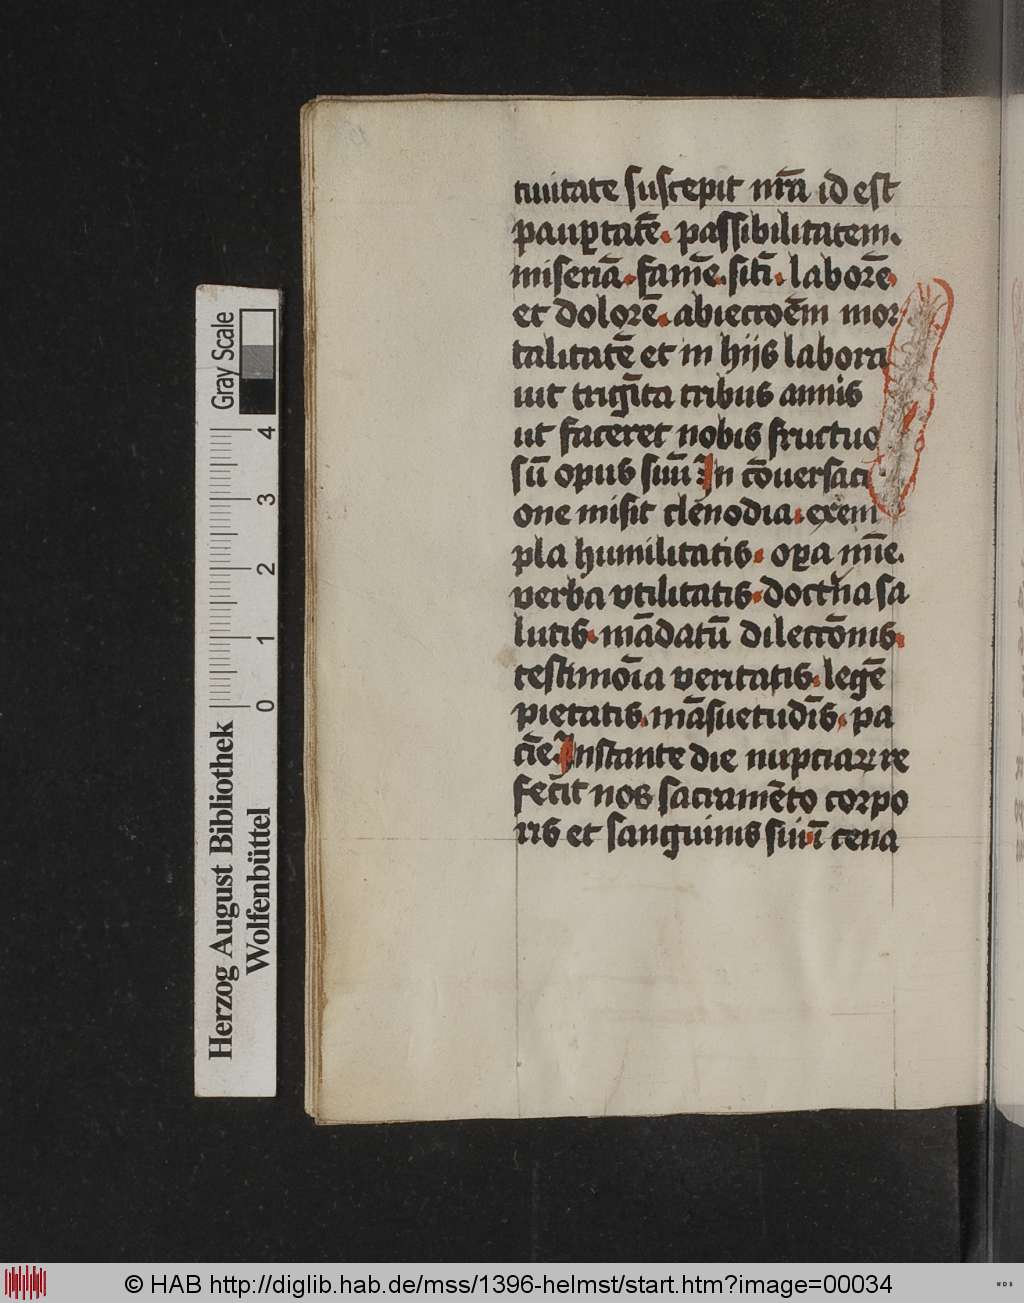 tiuitate suscepit nr̄a id est
paup̱tatē. passibilitatem.
miseriā. famē. sitī. laborē.
et dolorē. abieccōēm mor
talitatē et in hijs labora
uit trigīta tribus annis
ut faceret nobis fructuo
sū opus suū In cōuersaci
one misit clenodia. exem
pla humilitatis. op̱a mīe.
verba vtilitatis. doctͥna sa
lutis. mādatū dileccōnis.
testimōia veritatis. legē
pietatis. māsuetudīs. pa
cīe. Instante die nupciaꝝ re
fecit nos sacramēto corpo
ris et sanguinis sui. ī cena
Herzog August Bibliothek
Wolfenbüttel
0 1 2 3 4
Gray Scale
© HAB http://diglib.hab.de/mss/1396-helmst/start.htm?image=00034
WDB